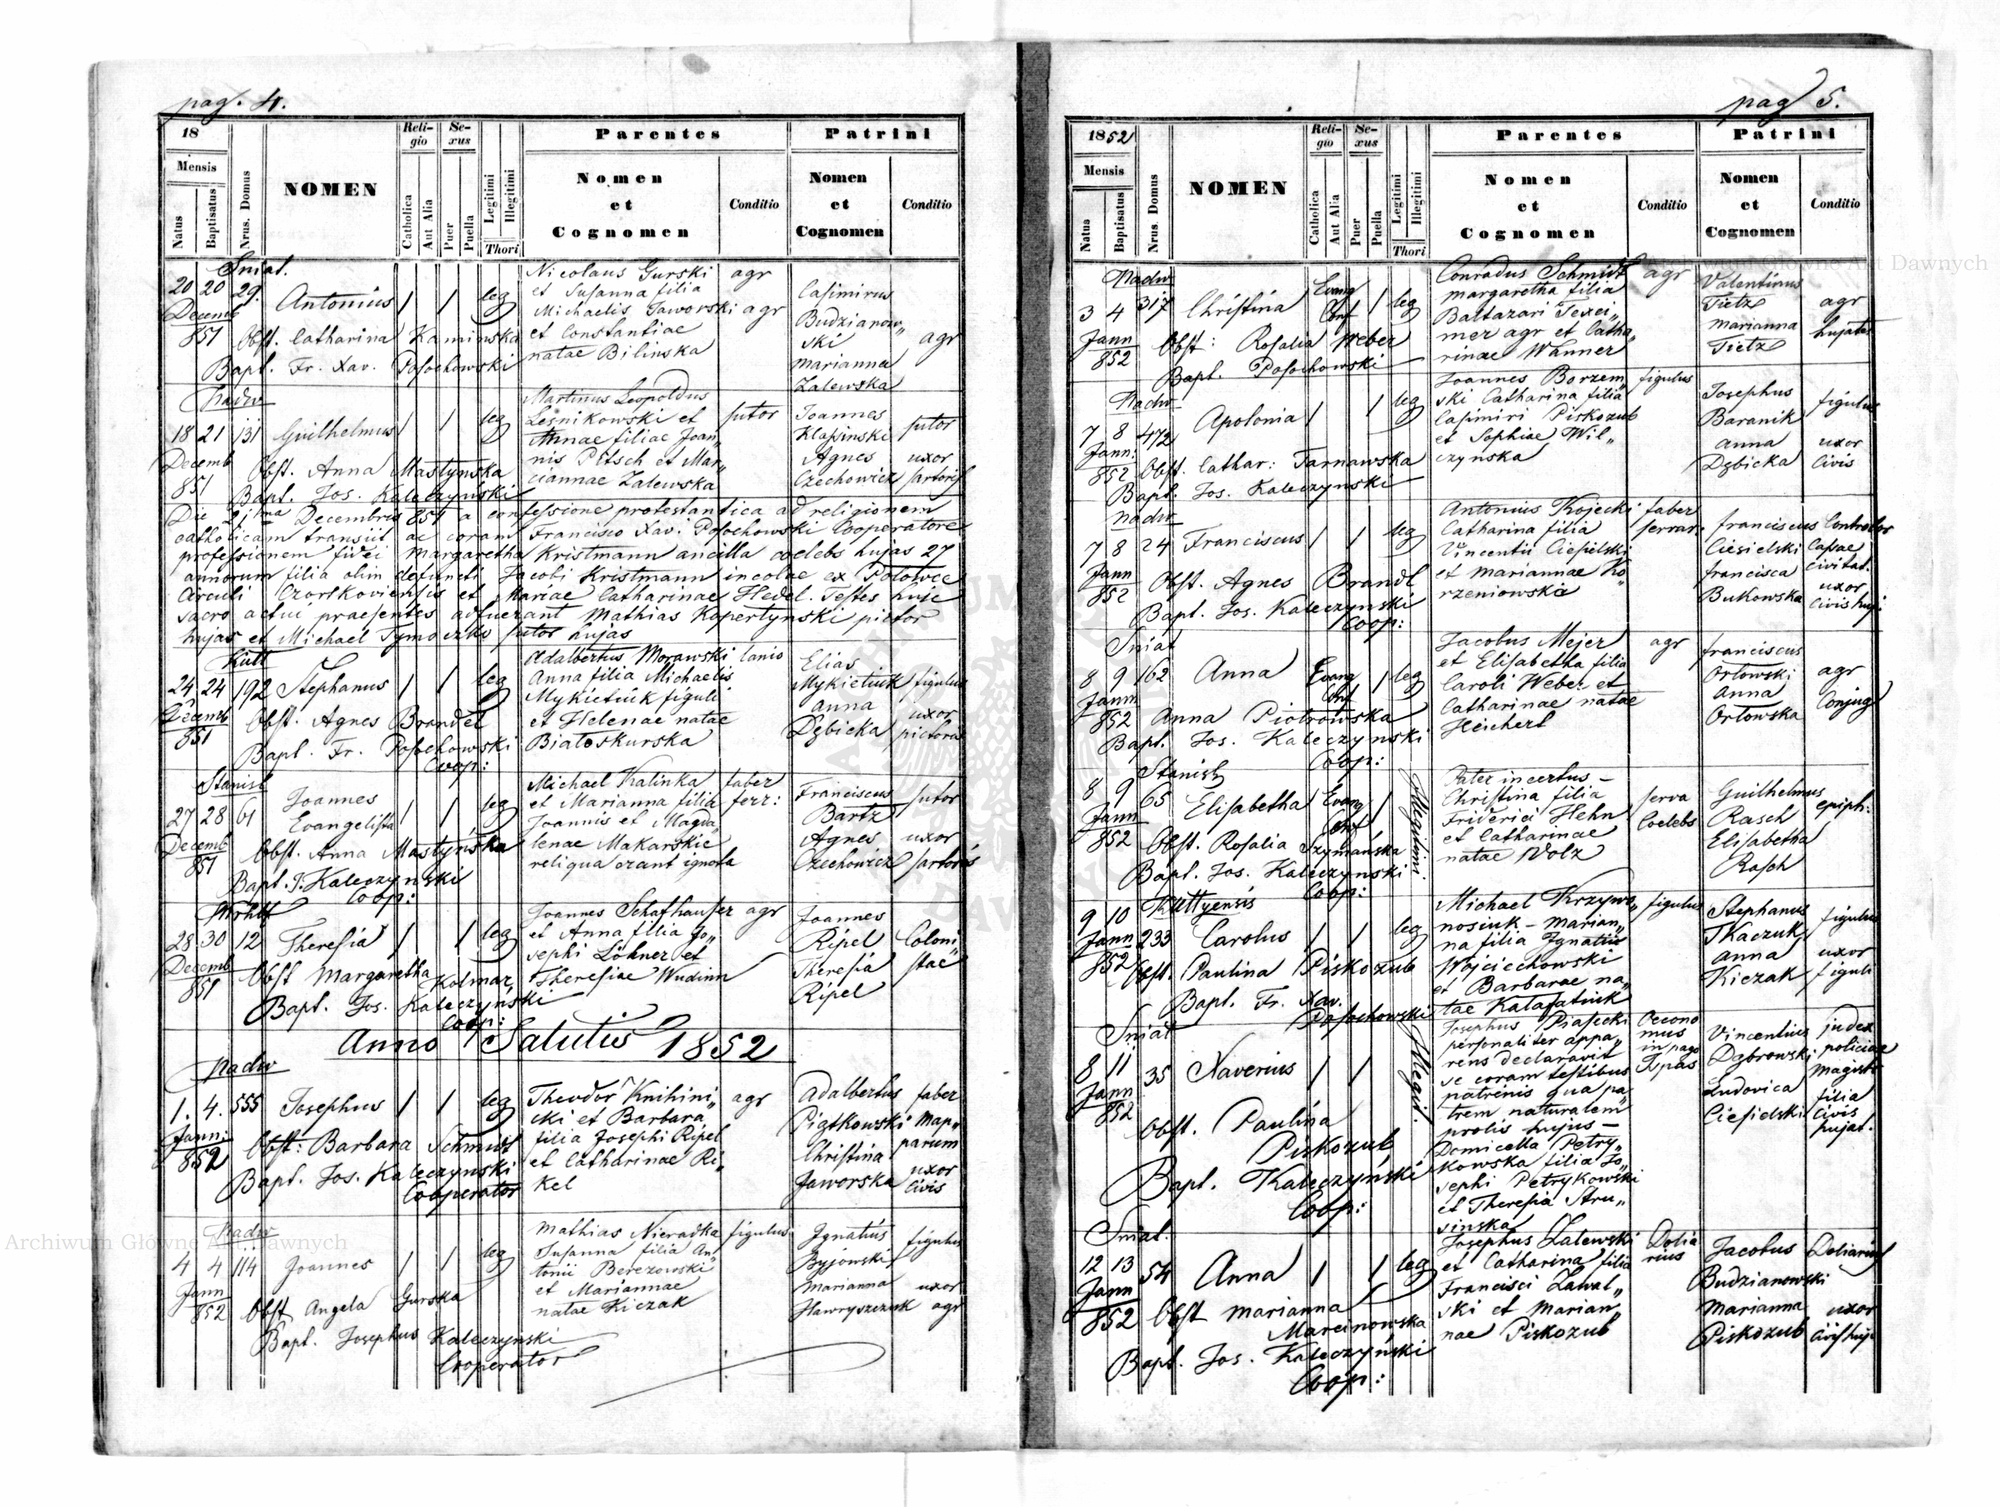 pag. 4.
18
Mensis
Natus
Baptisatus
Nrus. Domus
NOMEN
Religio
Catholica
Aut Alia
Sexus
Puer
Puella
Legitimi
Illegitimi
Thori
Parentes
Nomen
et
Cognomen
Conditio
Patrini
Nomen
et
Cognomen
Conditio
Sniat.
20 20 29.
Decemb
851
Antonius
leg
Nicolaus Gurski
et Susanna filia
Michaelis Jaworski
et Constantiae
natae Bilinska
agr
agr
Casimirus
Budzianow„
ski
Marianna
Zalewska
agr
Obst. Catharina Kaminska
Bapt. Fr. Xav. Posochowski
Nadw
18 21 131
Decemb
851
Guilhelmus
leg
Martinus Leopoldus
Leśnikowski et
Annae filiae Joan„
nis Pitsch et Mar„
ciannae Zalewska
sutor
Joannes
Klasinski
Agnes
Czechowicz
sutor
uxor
sartoris
Obst. Anna Mastynska
Bapt. Jos. Kaleczynski
Die 21ma Decembris 851 a confessione protestantica ad religionem
catholicam transiit ac coram Francisco Xav. Posochowski Cooperatore
professionem fidei Margaretha Kristmann ancilla coelebs hujas 27
annorum filia olim defuncti Jacobi Kristmann incolae ex Polowce
Circuli Czorskoviensis et Mariae Catharinae Hedel. Testes huic
sacro actui praesentes adfuerant Mathias Kopertynski pictor
hujas et Michael Symoczko sutor hujas
Kutt
24 24 192
Decemb
851
Stephanus
leg
Adalbertus Morawski
Anna filia Michaelis
Mykietiuk figuli
et Helenae natae
Białoskurska
lanio
Elias
Mykietiuk
Anna
Dębicka
figulus
uxor
pictoris
Obst. Agnes Brandel
Bapt. Fr. Posochowski
Coop:
Stanisl
27 28 61
Decemb
851
Joannes
Evangelista
leg
Michael Kalinka
et Marianna filia
Joannis et Magda„
lenae Makarskie
reliqua erant ignota
faber
ferr:
Franciscus
Bartz
Agnes
Czechowicz
sutor
uxor
sartoris
Obst. Anna Mastyńska
Bapt. J. Kaleczynski
Coop:
28 30 12
Decemb
851
Theresia
leg
Joannes Schafhauser
et Anna filia Jo„
sephi Lökner et
Theresiae Wudinn
agr
Joannes
Ripel
Theresia
Ripel
Coloni„
stae
Obst Margaretha Kolmar
Bapt. Jos. Kaleczyński
Coop:
Anno Salutis 1852
Nadw
1. 4. 555
Jann:
852
Josephus
leg
Theodor Knihini„
cki et Barbara
filia Josephi Ripel
et Catharinae Ri„
kel
agr
Adalbertus
Piątkowski
Christina
Jaworska
faber
Map„
parum
uxor
civis
Obst: Barbara Schmidt
Bapt. Jos. Kaleczynski
Cooperator
Nadw
4 4 114
Jann
852
Joannes
leg
Mathias Nieradka
Susanna filia An„
tonii Berezowski
et Mariannae
natae Kiczak
figulus
Ignatius
Byjowski
Marianna
Hawryszczuk
figulus
uxor
agr
Obst Angela Gurska
Bapt. Josephus Kaleczynski
Cooperator
pag 5.
1852
Mensis
Natus
Baptisatus
Nrus. Domus
NOMEN
Religio
Catholica
Aut Alia
Sexus
Puer
Puella
Legitimi
Illegitimi
Thori
Parentes
Nomen
et
Cognomen
Conditio
Patrini
Nomen
et
Cognomen
Conditio
Nadw
3 4 317
Jann
852
Christina
Evang
Conf
leg
Conradus Schmidt
Margaretha filia
Baltazari Texei„
mer agr et Catha„
rinae Wanner
agr
Valentinus
Tietz
Marianna
Tietz
agr
hujates
Obst: Rosalia Weber
Bapt. Posochowski
Nadw
7 8 472
Jann:
852
Apolonia
leg
Joannes Borzem„
ski Catharina filia
Casimiri Piskozub
et Sophiae Wil„
czyńska
figulus
Josephus
Baranik
Anna
Dębicka
figulus
uxor
civis
Obst. Cathar: Tarnawska
Bapt. Jos. Kaleczynski
Nadw
7 8 24
Jann
852
Franciscus
leg
Antonius Kojecki
Catharina filia
Vincentii Ciesielski
et Mariannae Ko„
rzeniowska
faber
ferrar:
Franciscus
Ciesielski
Francisca
Bukowska
Controlor
Cassae
civitat.
uxor
civis huj
Obst. Agnes Brandl
Bapt. Jos. Kaleczyński
Coop:
Sniat
8 9 162
Jann
852
Anna
Evang
Conf
leg
Jacobus Mejer
et Elisabetha filia
Caroli Weber et
Catharinae natae
Heichert
agr
Franciscus
Orłowski
Anna
Orłowska
agr
Conjug
Anna Piotrowska
Bapt. Jos. Kaleczyński
Coop:
Stanisł
8 9 65
Jann
852
Elisabetha
Evang
Conf
Illegitimi
Pater incertus –
Christina filia
Friderici Hehn
et Catharinae
natae Volz
serva
Coelebs
Guilhelmus
Rasch
Elisabetha
Rasch
epiph:
Obst. Rosalia Szymańska
Bapt. Jos. Kaleczynski
Coop:
Kuttyensis
9 10 233
Jann
852
Carolus
leg
Michael Krzywo„
nosiuk – Marian„
na filia Ignatii
Wojciechowski
et Barbarae na„
tae Kalafatiuk
figulus
Stephanus
Tkaczuk
Anna
Kiczak
figulus
uxor
figuli
Obst. Paulina Piskozub
Bapt. Fr. Xav.
Posochowski
Sniat
8 11 35
Jann
852
Xaverius
Illegi:
Josephus Piasecki
personaliter appa„
rens declaravit
se coram testibus
patrinis qua pa„
trem naturalem
prolis hujus –
Domicella Petry„
kowska filia Jo„
sephi Petrykowski
et Theresia Stru„
sinska
Oecono
mus
in pago
Ispas
Vincentius
Dąbrowski
Ludovica
Ciesielski
judex
policiae
Magistr
filia
civis
hujat.
Obst. Paulina
Piskozub
Bapt. Kaleczyński
Coop:
Sniat.
12 13 54
Jann
852
Anna
leg
Josephus Zalewski
et Catharina filia
Francisci Zawal„
ski et Marian„
nae Piskozub
Dolia
rius
Jacobus
Budzianowski
Marianna
Piskozub
Doliarius
uxor
Obst Marianna
Marcinowska
Bapt. Jos. Kaleczyński
Coop:
Archiwum Główne Akt Dawnych
Archiwum Główne Akt Dawnych